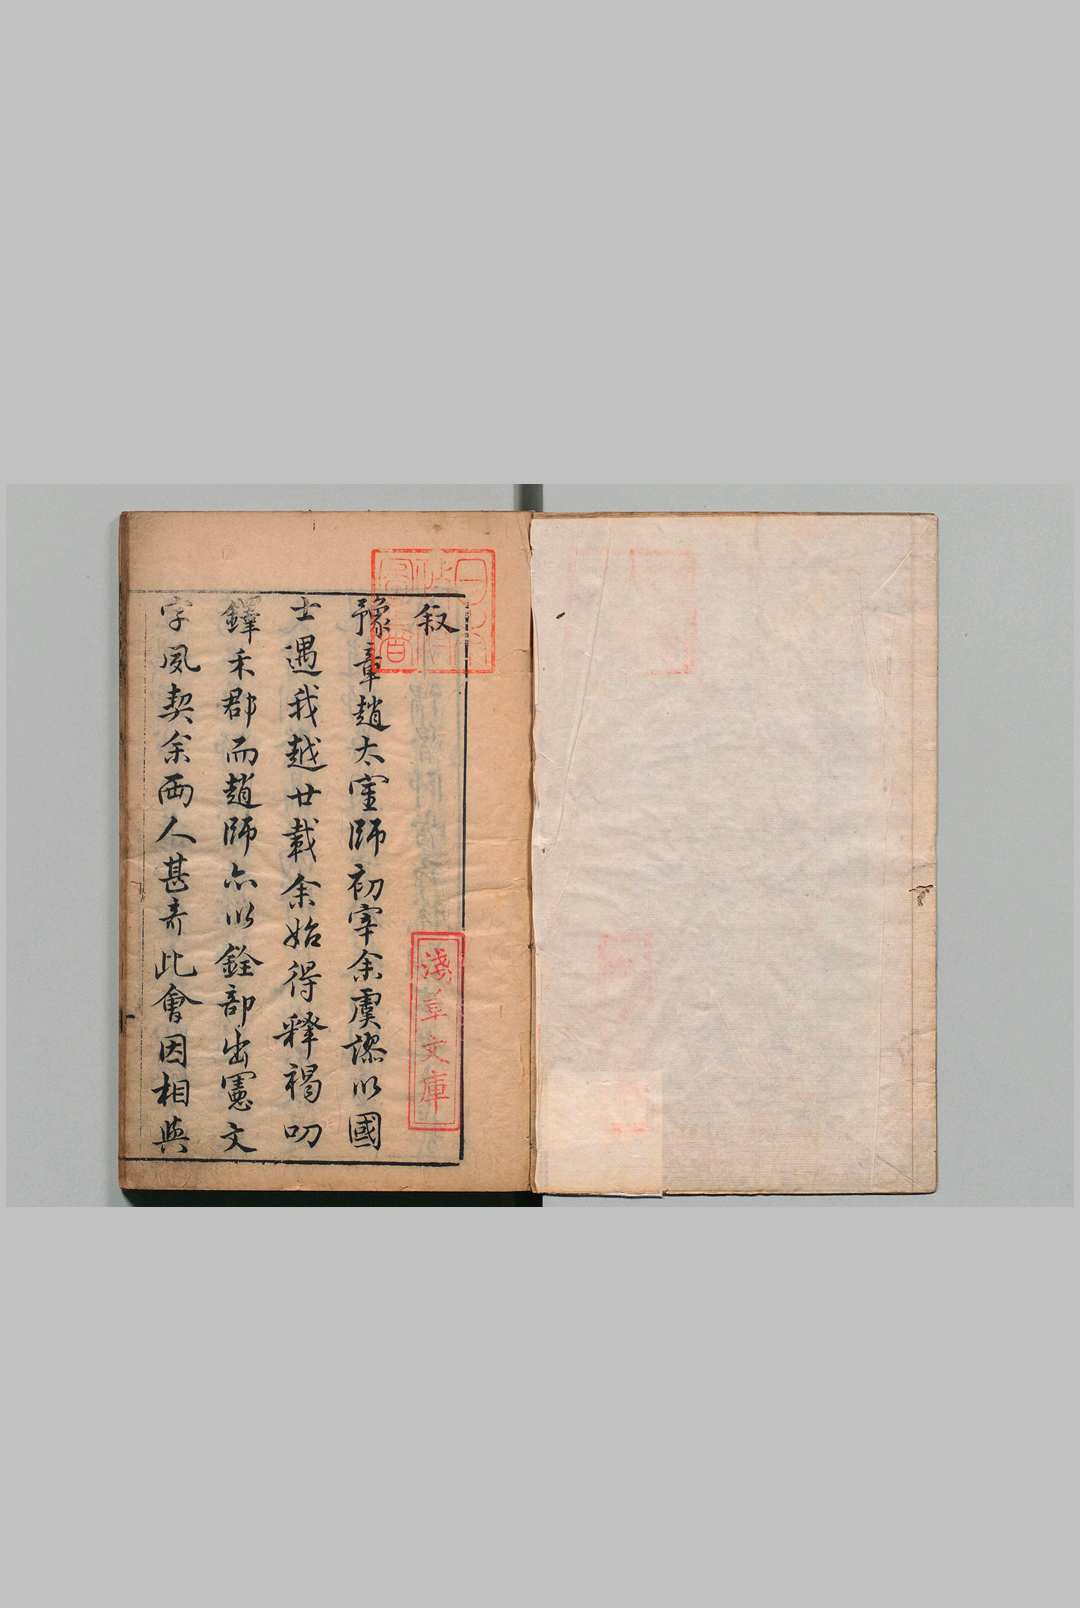 叙
豫章趙太室師初宰余虞謬以國
士遇我越廿載余始得釋褐叨
鐸禾郡而趙師亦以銓部出憲文
字夙契余両人甚奇此會因相與
淺草文庫